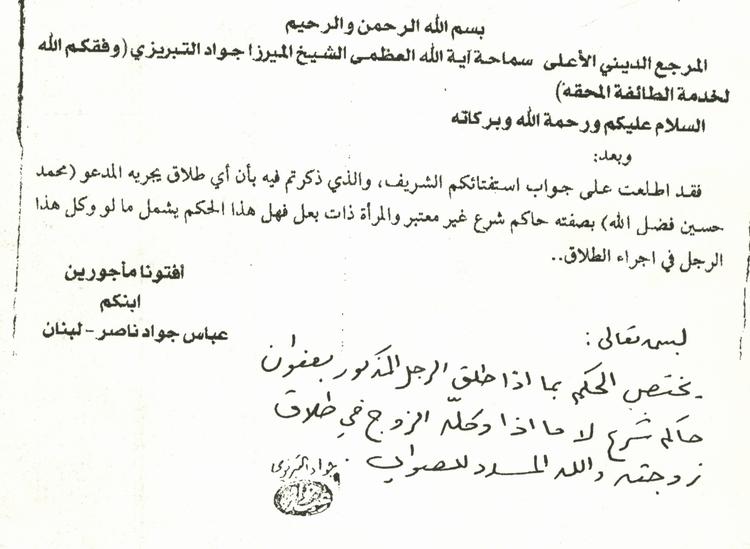 بسم الله الرحمن والرحيم
المرجع الديني الأعلى سماحة آية الله العظمى الشيخ الميرزا جواد التبريزي (وفقكم الله
لخدمة الطائفة المحقه)
السلام عليكم ورحمة الله وبركاته
وبعد:
فقد اطلعت على جواب استفتائكم الشريف، والذي ذكرتم فيه بأن أي طلاق يجريه المدعو (محمد
حسين فضل الله) بصفته حاكم شرع غير معتبر والمرأة ذات بعل فهل هذا الحكم يشمل ما لو وكل هذا
الرجل في اجراء الطلاق..
أفتونا مأجورين
ابنكم
عباس جواد ناصر - لبنان
بسمه تعالى:
يختص الحكم بما اذا طلق الرجل المذكور بعنوان
حاكم شرع لا ما اذا وكله الزوج في طلاق
زوجته والله المسدد للصواب.
جواد التبريزي